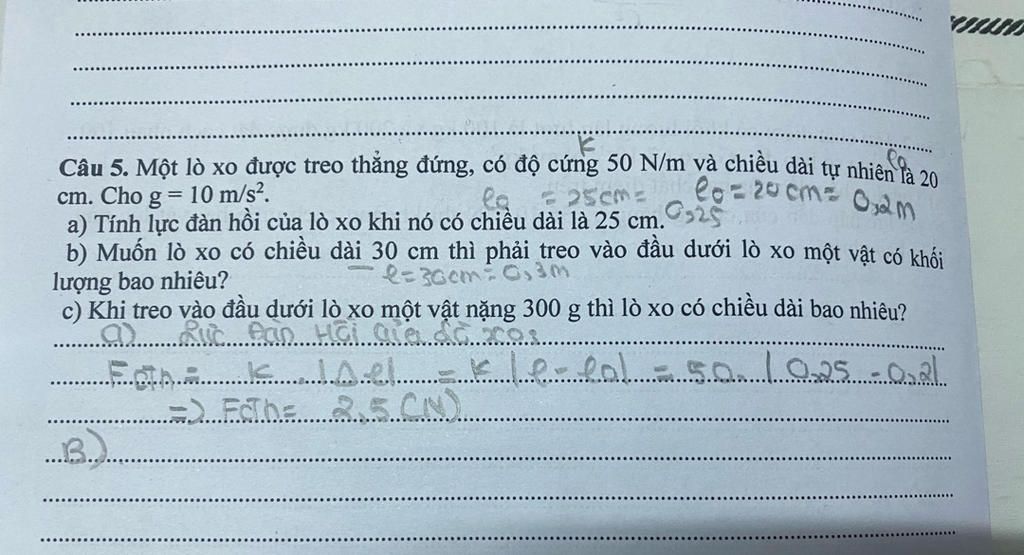 K
Câu 5. Một lò xo được treo thẳng đứng, có độ cứng 50 N/m và chiều dài tự nhiên là 20
cm. Cho g = 10 m/s².
l0
l0 = 25cm =
l0 = 20cm = 0,2m
a) Tính lực đàn hồi của lò xo khi nó có chiều dài là 25 cm.
0,25
b) Muốn lò xo có chiều dài 30 cm thì phải treo vào đầu dưới lò xo một vật có khối
lượng bao nhiêu?
l=30cm=0,3m
c) Khi treo vào đầu dưới lò xo một vật nặng 300 g thì lò xo có chiều dài bao nhiêu?
a) Lực Đàn Hồi
Fđh = K . |Δl| = K |l - l0| = 50. | 0,25 - 0,2|
=> Fđh = 2,5 (N)
B)